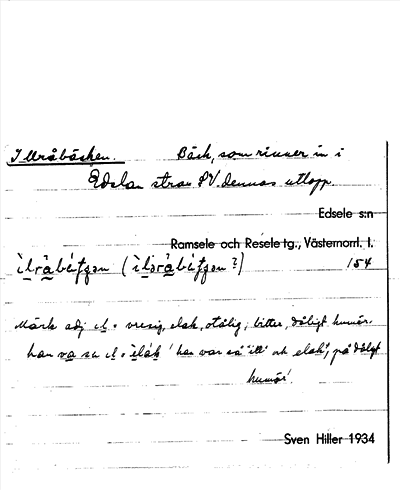 Illråbäcken. Bäck, som rinner in i
Edslan strax SV. dennas utlopp.
Edsele s:n
Ramsele och Resele tg., Västernorrl. l.
154
Märk adj il = vresig, elak, otålig, bitter, dåligt humör.
han va sa il o elak 'han var så "ill" och elak', på dåligt
humör'.
Sven Hiller 1934